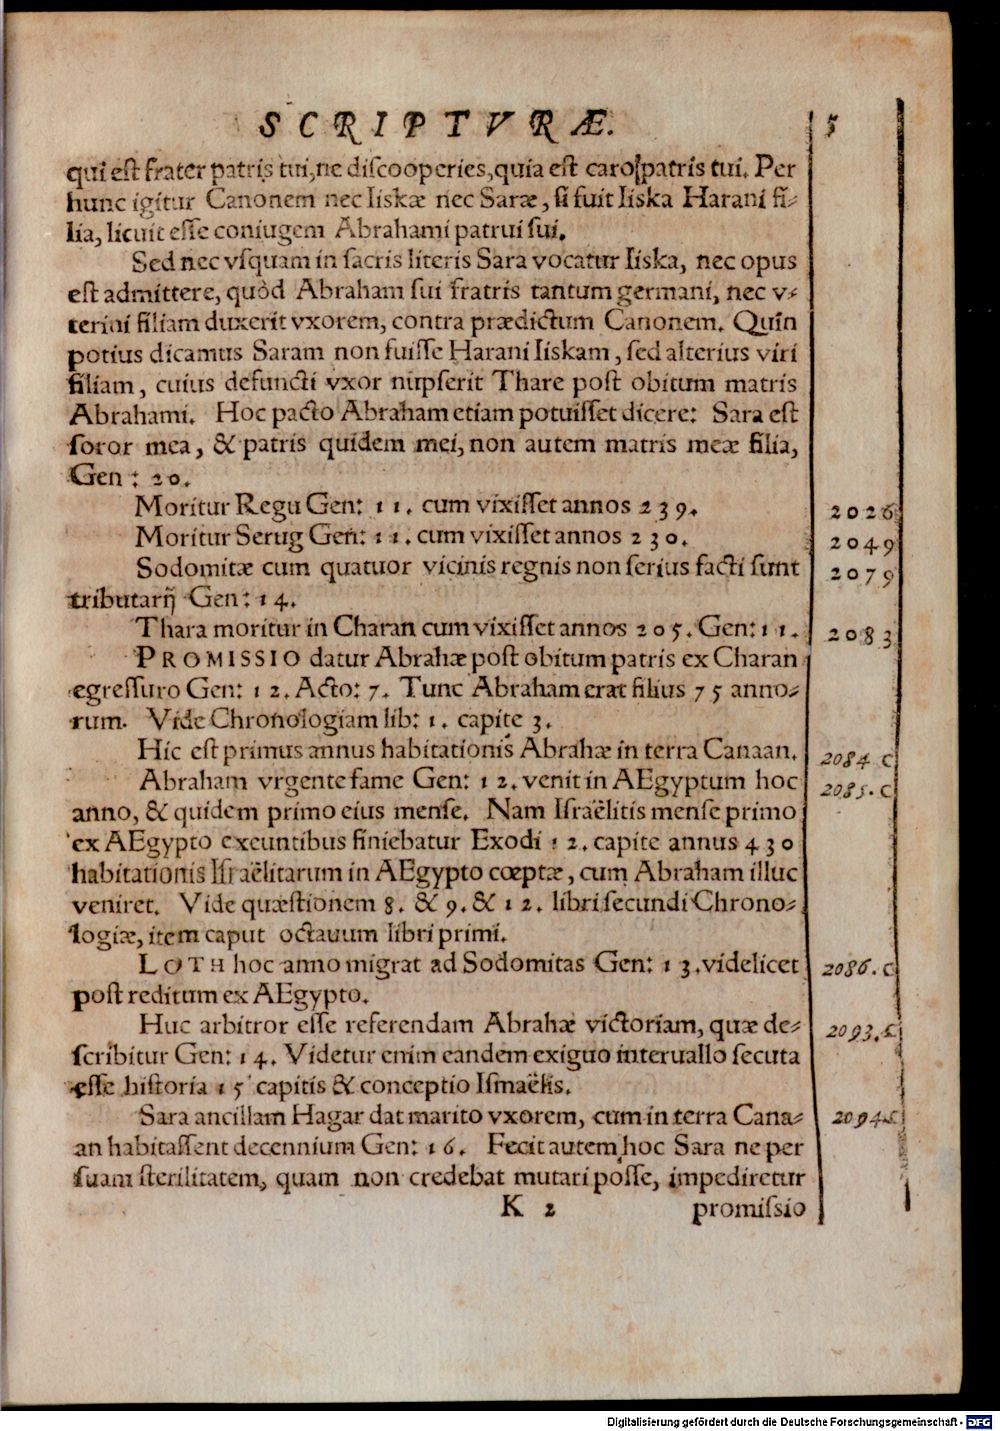 SCRIPTVRÆ. 5
qui est frater patris tui, ne discooperies, quia est caro patris tui. Per
hunc igitur Canonem nec Iiskæ nec Saræ, si fuit Iiska Harani fi-
lia, licuit esse coniugem Abrahami patrui sui.
Sed nec vsquam in sacris literis Sara vocatur Iiska, nec opus
est admittere, quòd Abraham sui fratris tantum germani, nec v-
terini filiam duxerit vxorem, contra prædictum Canonem. Quin
potius dicamus Saram non fuisse Harani Iiskam, sed alterius viri
filiam, cuius defuncti vxor nupserit Thare post obitum matris
Abrahami. Hoc pacto Abraham etiam potuisset dicere: Sara est
soror mea, & patris quidem mei, non autem matris meæ filia,
Gen: 20.
Moritur Regu Gen: 11. cum vixisset annos 239. 2026
Moritur Serug Gen: 11. cum vixisset annos 230. 2049
Sodomitæ cum quatuor vicinis regnis non serius facti sunt 2079
tributarij Gen: 14.
Thara moritur in Charan cum vixisset annos 205. Gen: 11. 2083
PROMISSIO datur Abrahæ post obitum patris ex Charan
egressuro Gen: 12. Acto: 7. Tunc Abraham erat filius 75 anno-
rum. Vide Chronologiam lib: 1. capite 3.
Hic est primus annus habitationis Abrahæ in terra Canaan. 2084 c
Abraham vrgente fame Gen: 12. venit in AEgyptum hoc 2085. c
anno, & quidem primo eius mense. Nam Israëlitis mense primo
ex AEgypto exeuntibus finiebatur Exodi 12. capite annus 430
habitationis Israëlitarum in AEgypto cœptæ, cum Abraham illuc
veniret. Vide quæstionem 8. & 9. & 12. libri secundi Chrono-
logiæ, item caput octauum libri primi.
LOTH hoc anno migrat ad Sodomitas Gen: 13. videlicet 2086. c
post reditum ex AEgypto.
Huc arbitror esse referendam Abrahæ victoriam, quæ de- 2093. c
scribitur Gen: 14. Videtur enim eandem exiguo interuallo secuta
esse historia 15 capitis & conceptio Ismaëlis.
Sara ancillam Hagar dat marito vxorem, cum in terra Cana- 2094. c
an habitassent decennium Gen: 16. Fecit autem hoc Sara ne per
suam sterilitatem, quam non credebat mutari posse, impediretur
K 2 promissio
Digitalisierung gefördert durch die Deutsche Forschungsgemeinschaft - DFG